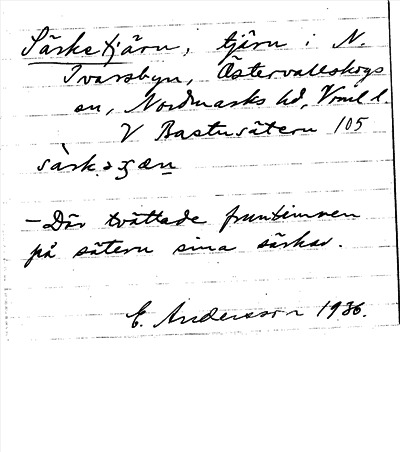 Särketjärn, tjärn i N.
Ivarsbyn, Östervallskogs
sn, Nordmarks hd, Vrml l.
V Bastusätern 105
sàrk.əʒæn
— Där tvättade fruntimren
på sätern sina särkar.
E. Andersson 1936.